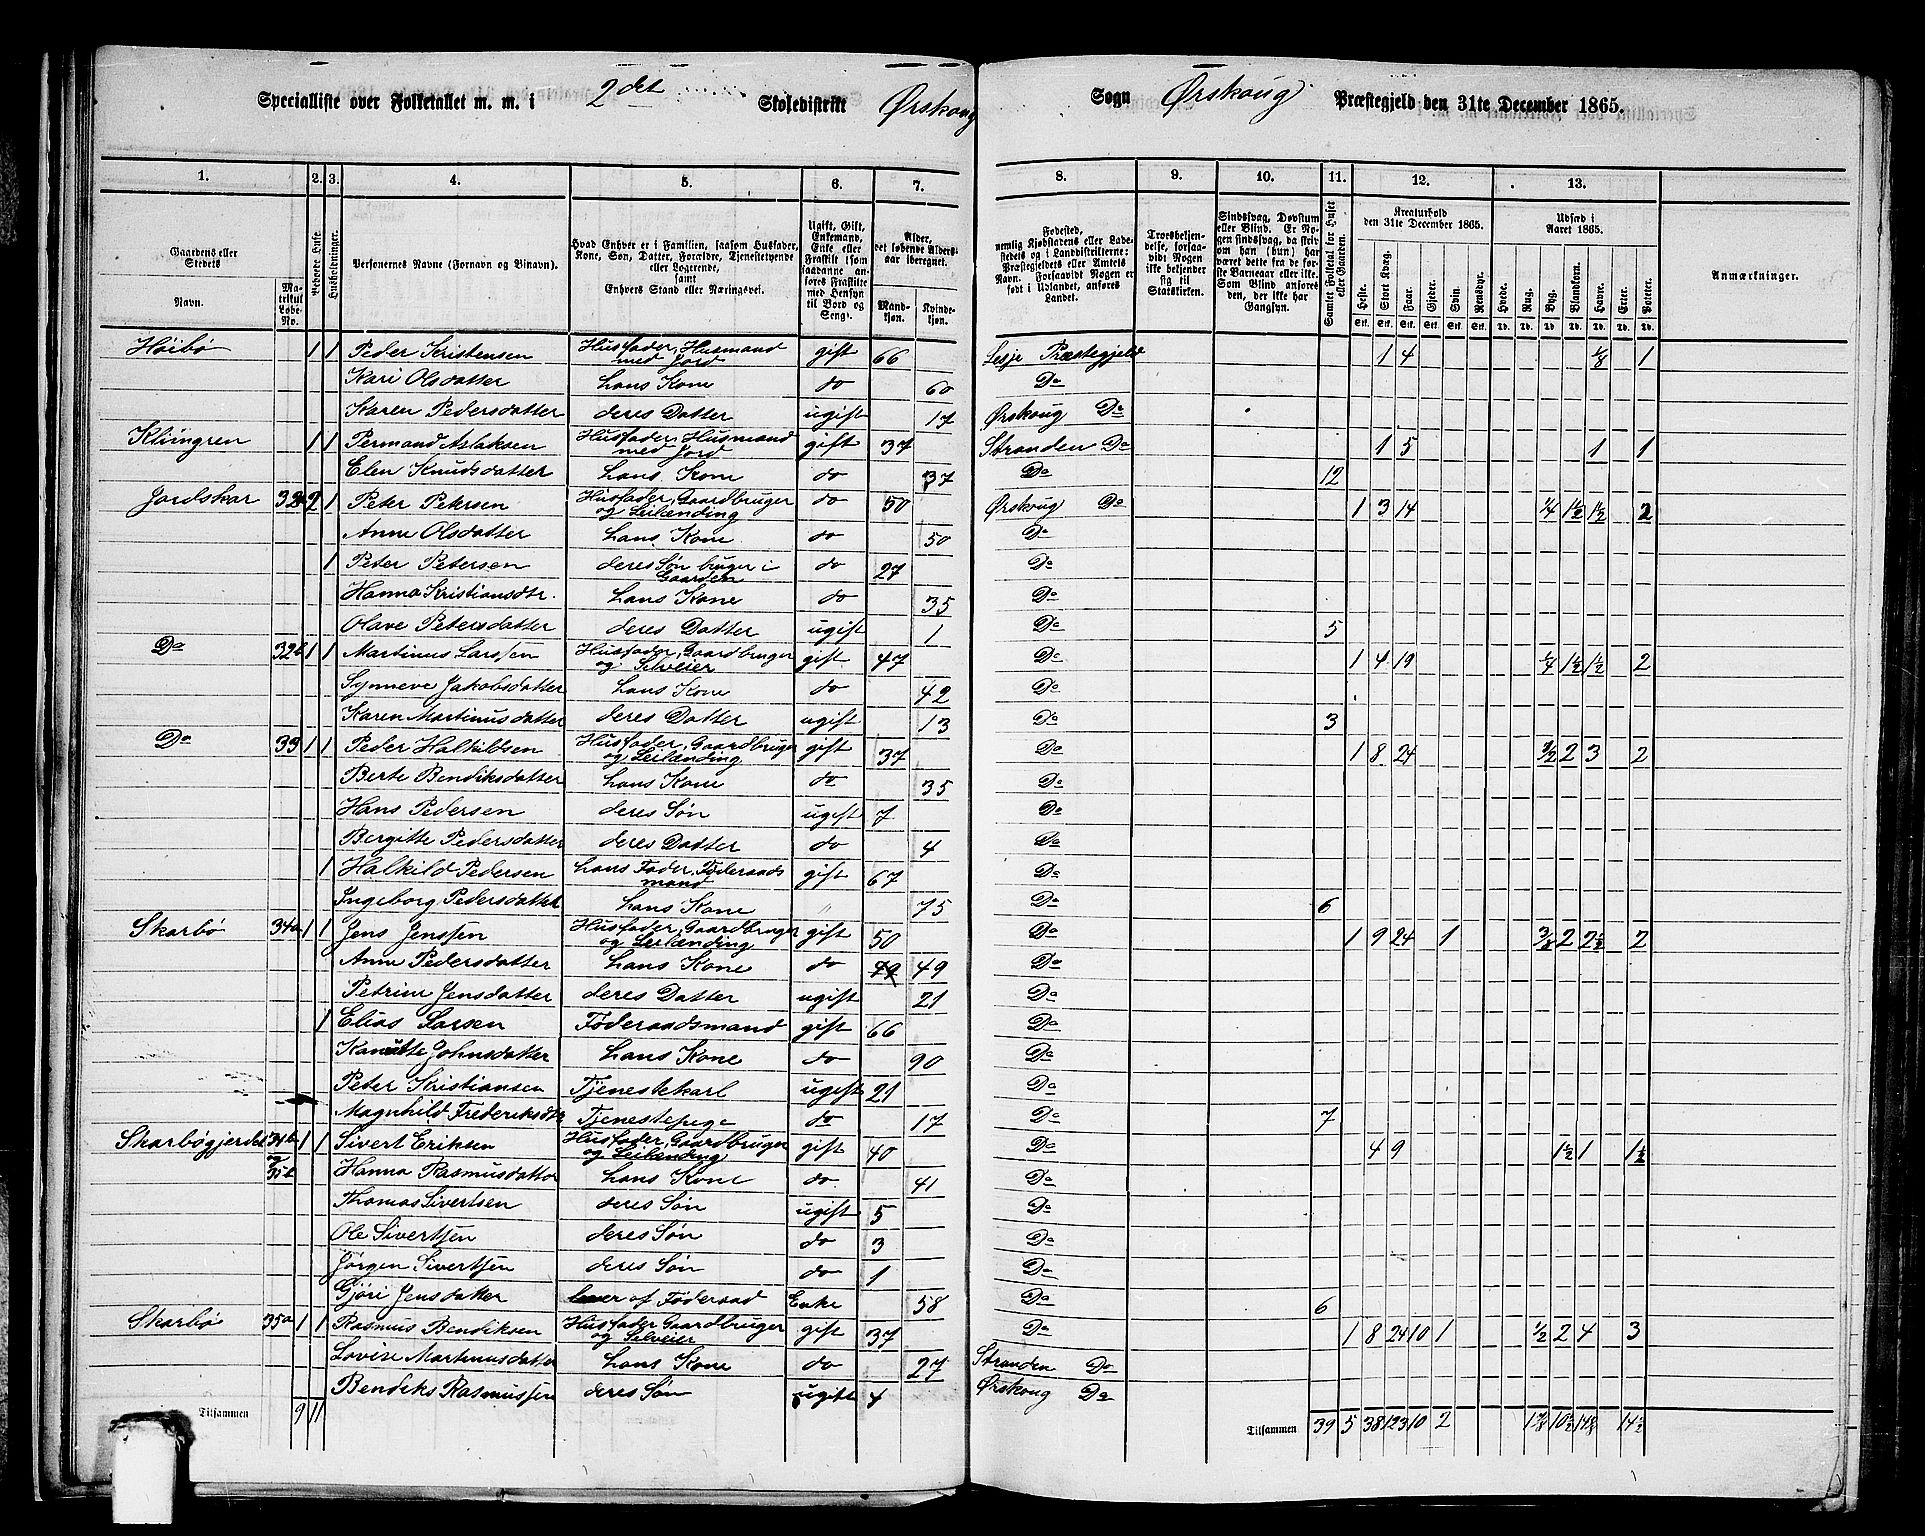 Specialliste over Folketallet m. m. i 2det Skoledistrikt Ørskoug Sogn Ørskoug Præstegjeld den 31te December 1865.
1. 2. 3. 4. 5. 6. 7. 8. 9. 10. 11. 12. 13.
Gaardens eller Stedets Navn.
Matrikul Løbe-No.
Beboede Huse.
Husholdninger.
Personernes Navne (Fornavn og Binavn).
Hvad Enhver er i Familien, saasom Husfader, Kone, Søn, Datter, Forældre, Tjenestetyende eller Logerende, samt Enhvers Stand eller Næringsvei.
Ugift, Gift, Enkemand, Enke eller Fraskilt (som saadanne anføres Fraskilte med Hensyn til Bord og Seng).
Alder, det løbende Aldersaar iberegnet.
Mandkjøn. Kvindekjøn.
Fødested, nemlig Kjøbstadens eller Ladestedets og i Landdistrikterne: Præstegjeldets eller Amtets Navn. Forsaavidt Nogen er født i Udlandet, anføres Landet.
Troesbekjendelse, forsaavidt Nogen ikke bekjender sig til Statskirken.
Sindssvag, Døvstum eller Blind. Er Nogen sindssvag, da skrives om han (hun) har været dette fra de første Barneaar eller ikke. Som Blind anføres den, der ikke har Gangsyn.
Samlet Folketal for Huset eller Gaarden.
Kreaturhold den 31te December 1865.
Heste. Stort Kvæg. Faar. Gjeder. Svin. Rensdyr.
Udsæd i Aaret 1865.
Hvede. Rug. Byg. Blandkorn. Havre. Erter. Poteter.
Anmærkninger.
Høibø 1 1 Peder Kristensen Husfader, Husmand med Jord gift 66 Lesje Præstegjeld 1 4 1/8 1
Kari Olsdatter hans Kone do 60 Do
Karen Pedersdatter deres Datter ugift 17 Ørskoug Do
Klimgren 1 1 Permand Aslaksen Husfader, Husmand med Jord gift 37 Stranden Do 1 5 1 1
Elen Knudsdatter hans Kone do 37 Do 12
Jordskar 32a 2 1 Peter Petersen Husfader, Gaardbruger og Leilænding do 50 Ørskoug Do 1 3 14 1/4 1 1/2 1 1/2 2
Anne Olsdatter hans Kone do 50 Do
1 Peter Petersen deres Søn bruger i Gaarden do 27 Do
Hanna Kristiansdtr. hans Kone do 35 Do
Olave Petersdatter deres Datter ugift 1 Do 5
Do 32b 1 1 Martinus Larssen Husfader, Gaardbruger og Selveier gift 47 Do 1 4 19 1/4 1 1/2 1 1/2 2
Synneve Jakobsdatter hans Kone do 42 Do
Karen Martinusdatter deres Datter ugift 13 Do 3
Do 33 1 1 Peder Halkildsen Husfader, Gaardbruger og Leilænding gift 37 Do 1 8 24 1/2 2 3 2
Berte Bendiksdatter hans Kone do 35 Do
Hans Pedersen deres Søn ugift 7 Do
Bergitte Pedersdatter deres Datter do 4 Do
1 Halkild Pedersen hans Fader, Føderaadsmand gift 67 Do
Ingeborg Pedersdatter hans Kone " 75 Do 6
Skarbø 34a 1 1 Jens Jenssen Husfader, Gaardbruger og Leilænding gift 50 Do 1 9 24 1 3/8 2 2 1/2 2
Anne Pedersdatter hans Kone do 49 49 Do
Petrine Jensdatter deres Datter ugift 21 Do
1 Elias Larsen Føderaadsmand gift 66 Do
Johnsdatter hans Kone do 90 Do
Peter Kristiansen Tjenestekarl ugift 21 Do
Magnhild Frederiksdtr Tjenestepige do 17 Do 7
Skarbøgjerdet 34b og 35b 1 1 Sivert Eriksen Husfader, Gaardbruger og Leilænding gift 40 Do 4 9 1 1/2 1 1 1/2
Hanna Rasmusdatter hans Kone do 41 Do
Thomas Sivertsen deres Søn ugift 5 Do
Ole Sivertsen deres Søn do 3 Do
Jørgen Sivertsen deres Søn do 1 Do
Gjøri Jensdatter lever af Føderaad Enke 58 Do 6
Skarbø 35a 1 1 Rasmus Bendiksen Husfader Gaardbruger og Selveier gift 37 Do 1 8 24 10 1 1/2 2 4 3
Lovise Martinusdatter hans Kone do 27 Stranden Do
Bendiks Rasmussen deres Søn ugift 4 Ørskoug Do
Tilsammen 9 11 Tilsammen 39 5 38 123 10 2 1 7/8 10 1/2 14 1/2